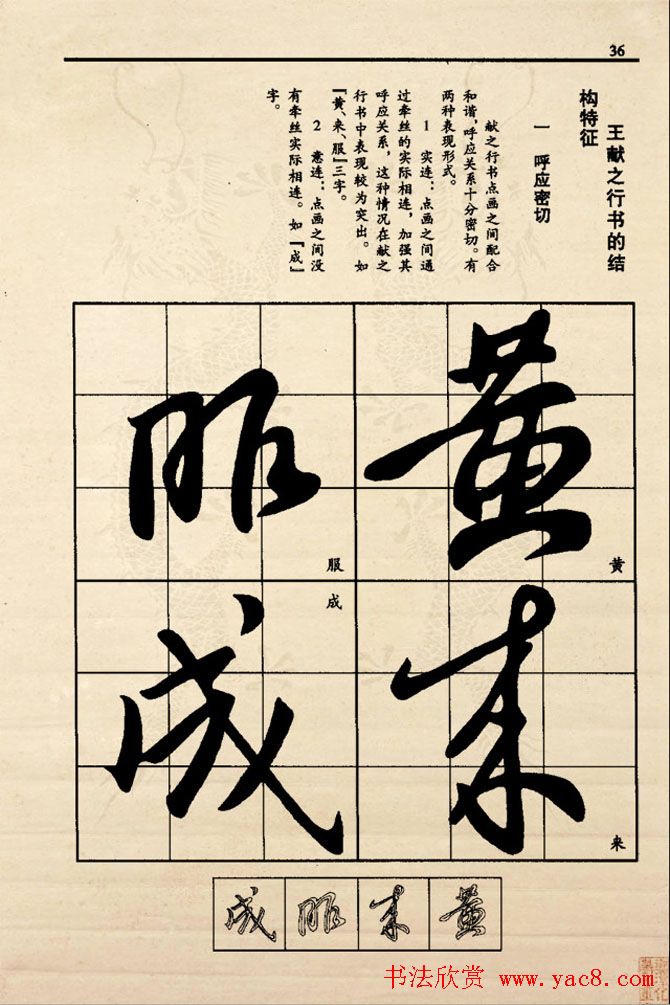 36
王献之行书的结
构特征
一 呼应密切
献之行书点画之间配合
和谐，呼应关系十分密切。有
两种表现形式。
1 实连：点画之间通
过牵丝的实际相连，加强其
呼应关系，这种情况在献之
行书中表现较为突出。如
『黄、来、服』三字。
2 意连：点画之间没
有牵丝实际相连。如『成』
字。
黄
黄
来
来
服
服
成
成
黄
来
服
成
书法欣赏 www.yac8.com